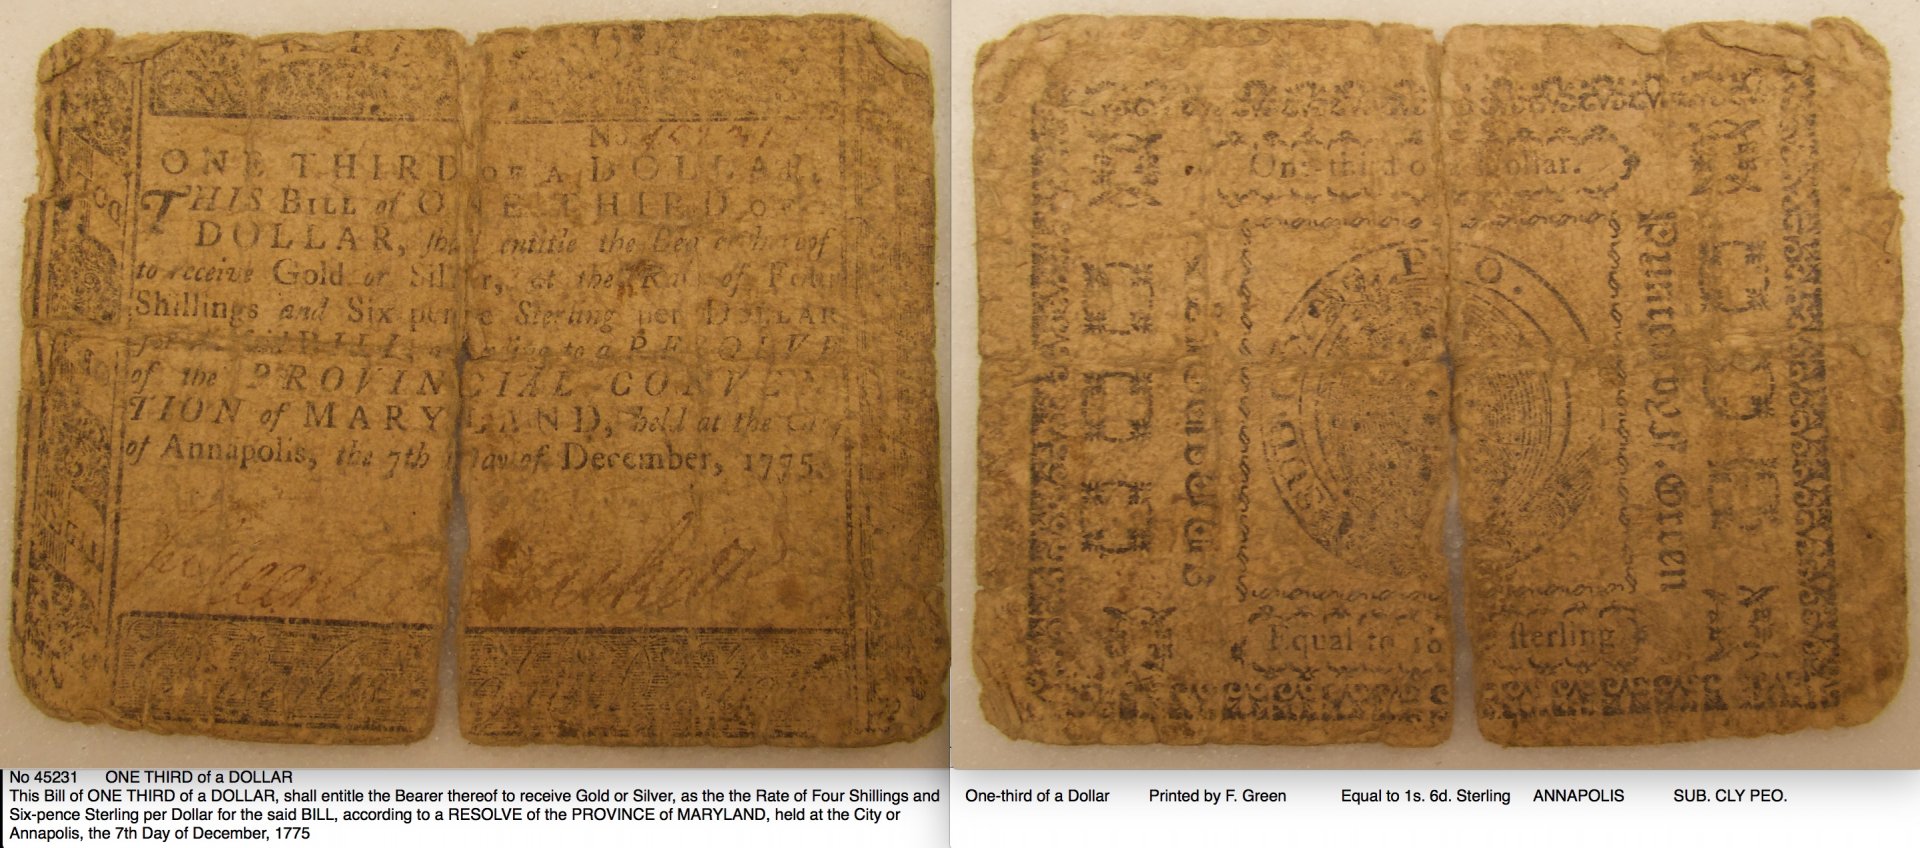 No 45231
ONE THIRD OF A DOLLAR.
THIS BILL of ONE THIRD OF
DOLLAR, shall entitle the Bearer hereof
to receive Gold or Silver, at the Rate of Four
Shillings and Six-pence Sterling per DOLLAR
for the said BILL, according to a RESOLVE
of the PROVINCIAL CONVEN-
TION of MARYLAND, held at the City
of Annapolis, the 7th Day of December, 1775.
One-third of a Dollar.
ANNAPOLIS
SUB CLY PEO.
Printed by F. Green
Equal to 1s sterling
No 45231 ONE THIRD of a DOLLAR
This Bill of ONE THIRD of a DOLLAR, shall entitle the Bearer thereof to receive Gold or Silver, as the the Rate of Four Shillings and
Six-pence Sterling per Dollar for the said BILL, according to a RESOLVE of the PROVINCE of MARYLAND, held at the City or
Annapolis, the 7th Day of December, 1775
One-third of a Dollar Printed by F. Green Equal to 1s. 6d. Sterling ANNAPOLIS SUB. CLY PEO.